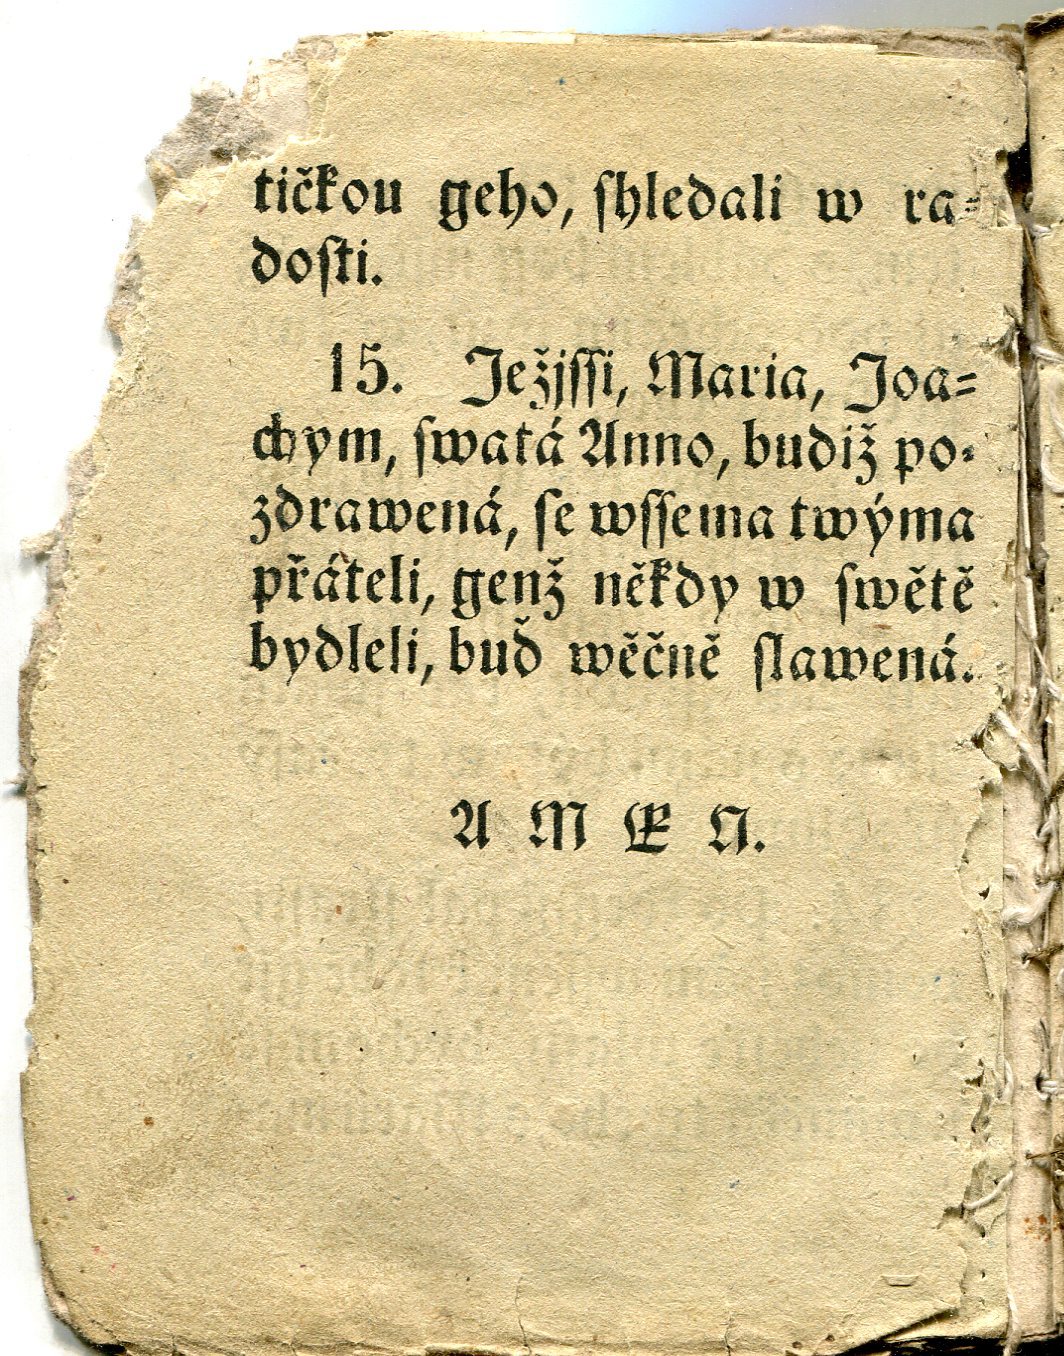 tičkou geho, ſhledali w ra⸗
doſti.
15. Ježjſſi, Maria, Joa⸗
chym, ſwatá Anno, budiž po⸗
zdrawená, ſe wſſema twýma
přáteli, genž někdy w ſwětě
bydleli, buď wěčně ſlawená.
AMEN.